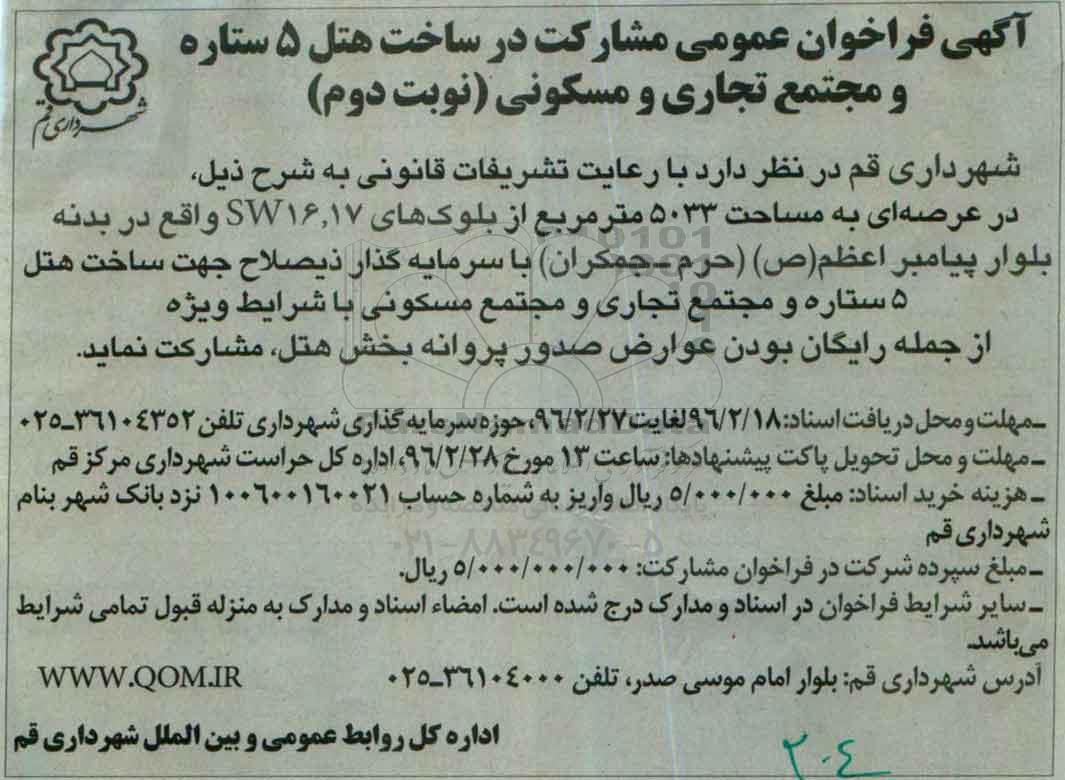 آگهی فراخوان عمومی مشارکت در ساخت هتل ۵ ستاره
و مجتمع تجاری و مسکونی (نوبت دوم)
شهرداری قم
شهرداری قم در نظر دارد با رعایت تشریفات قانونی به شرح ذیل،
در عرصه‌ای به مساحت ۵۰۳۳ مترمربع از بلوک‌های SW۱۶,۱۷ واقع در بدنه
بلوار پیامبر اعظم(ص) (حرم -جمکران) با سرمایه گذار ذیصلاح جهت ساخت هتل
۵ ستاره و مجتمع تجاری و مجتمع مسکونی با شرایط ویژه
از جمله رایگان بودن عوارض صدور پروانه بخش هتل، مشارکت نماید.
ـ مهلت و محل دریافت اسناد: ۹۶/۲/۱۸ لغایت ۹۶/۲/۲۷، حوزه سرمایه گذاری شهرداری تلفن ۳۶۱۰۴۳۵۲ـ۰۲۵
ـ مهلت و محل تحویل پاکت پیشنهادها: ساعت ۱۳ مورخ ۹۶/۲/۲۸، اداره کل حراست شهرداری مرکز قم
ـ هزینه خرید اسناد: مبلغ ۵/۰۰۰/۰۰۰ ریال واریز به شماره حساب ۱۰۰۶۰۰۱۶۰۰۲۱ نزد بانک شهر بنام
شهرداری قم
۰۲۱-۸۸۳۴۹۶۷۰-۵
ـ مبلغ سپرده شرکت در فراخوان مشارکت: ۵/۰۰۰/۰۰۰/۰۰۰ ریال.
ـ سایر شرایط فراخوان در اسناد و مدارک درج شده است. امضاء اسناد و مدارک به منزله قبول تمامی شرایط
می‌باشد.
آدرس شهرداری قم: بلوار امام موسی صدر، تلفن ۳۶۱۰۴۰۰۰ـ۰۲۵ WWW.QOM.IR
اداره کل روابط عمومی و بین الملل شهرداری قم
۲۰۴